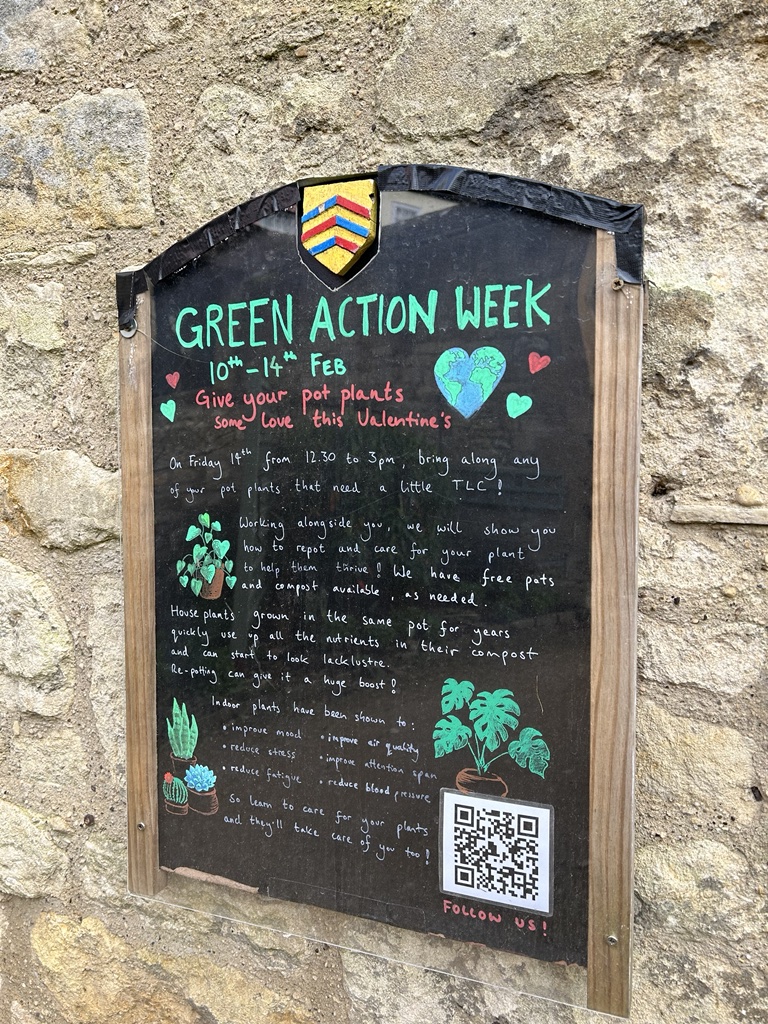 GREEN ACTION WEEK
10th - 14th FEB
Give your pot plants
some love this Valentine's
On Friday 14th from 12.30 to 3pm, bring along any
of your pot plants that need a little TLC!
Working alongside you, we will show you
how to repot and care for your plant
to help them thrive! We have free pots
and compost available, as needed.
House plants grown in the same pot for years
quickly use up all the nutrients in their compost
and can start to look lacklustre.
Re-potting can give it a huge boost!
Indoor plants have been shown to:
• improve mood • improve air quality
• reduce stress • improve attention span
• reduce fatigue • reduce blood pressure
So learn to care for your plants
and they'll take care of you too!
FOLLOW US!